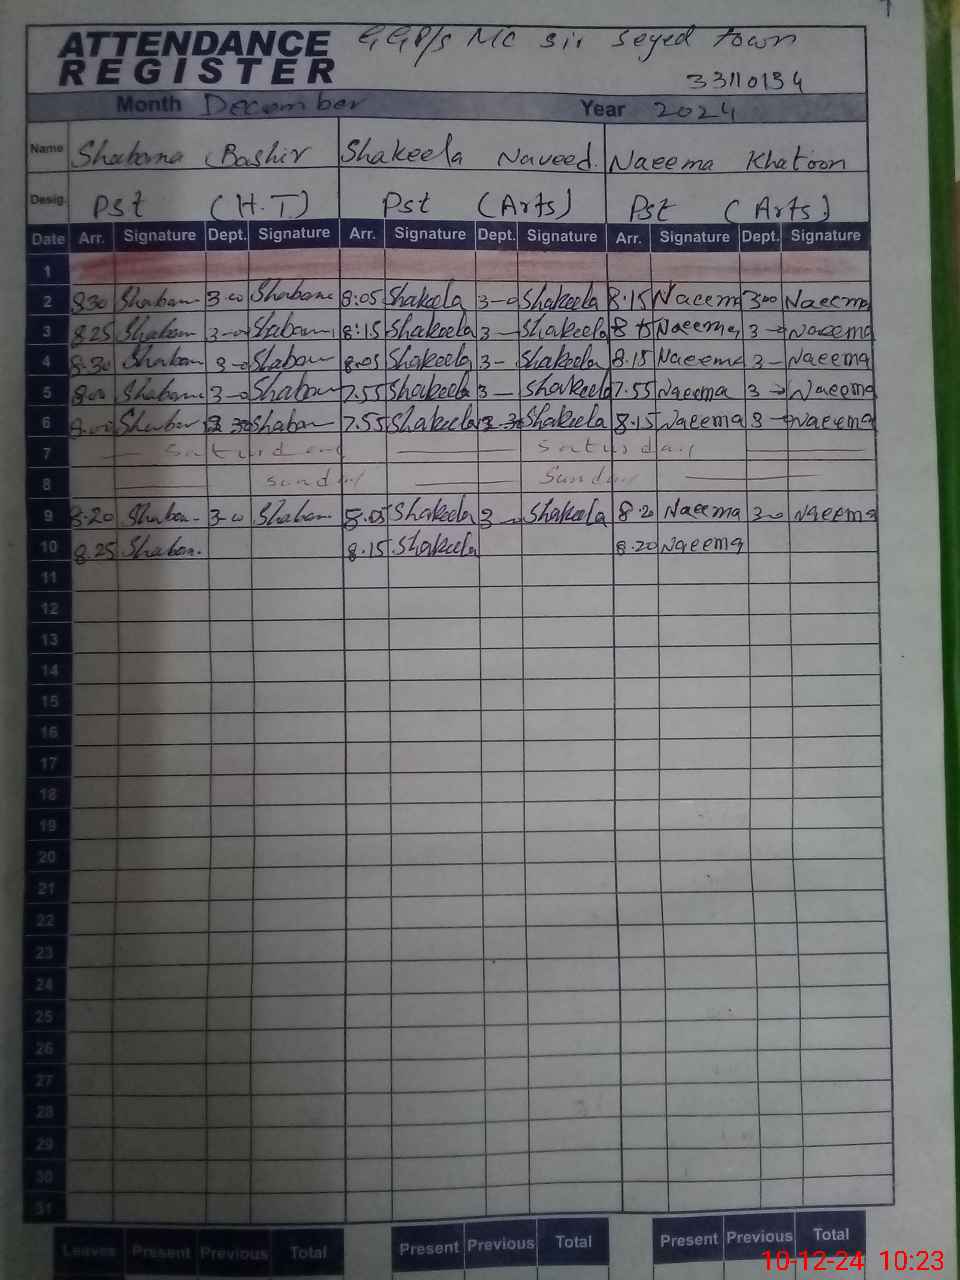 ATTENDANCE REGISTER GGP/s MC sir seyed town
33110134
Month December Year 2024
Name Shabana Bashir Shakeela Naveed. Naeema Khatoon
Desig. Pst (H.T) Pst (Arts) Pst (Arts)
Date Arr. Signature Dept. Signature Arr. Signature Dept. Signature Arr. Signature Dept. Signature
1
2 8.30 Shabana 3-00 Shabana 8:05 Shakeela 3-0 Shakeela 8.15 Naeema 3.00 Naeema
3 8.25 Shabana 3-0 Shabana 8:15 Shakeela 3- Shakeela 8 15 Naeema 3- Naeema
4 8.30 Shabana 3-0 Shabana 8.05 Shakeela 3- Shakeela 8.15 Naeema 3- Naeema
5 8.00 Shabana 3-0 Shabana 7.55 Shakeela 3- Shakeela 7.55 Naeema 3- Naeema
6 8.00 Shabana Shabana 7.55 Shakeela Shakeela 8.15 Naeema 3- Naeema
7 Saturday Saturday
8 Sunday Sunday
9 8.20 Shaban. 3-00 Shaban. 8.05 Shakeela 3- Shakeela 8.20 Naeema 3-0 Naeema
10 8.25 Shaban. 8.15 Shakeela 8.20 Naeema
11
12
13
14
15
16
17
18
19
20
21
22
23
24
25
26
27
28
29
30
31
Leaves Present Previous Total Present Previous Total Present Previous Total
10-12-24 10:23